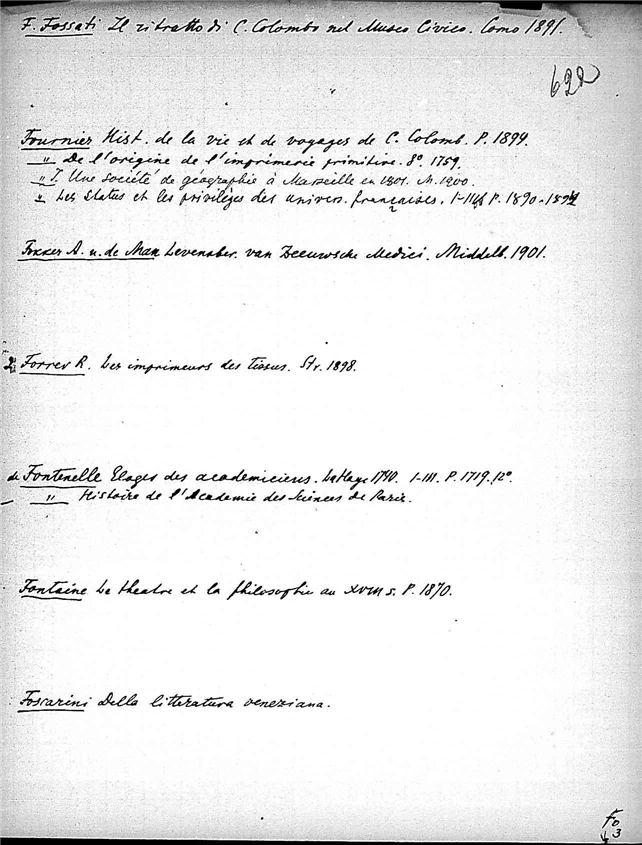 F. Fossati Il ritratto di C. Colombo nel Museo Civico. Como 1891.
622
Fournier Hist. de la vie et de voyages de C. Colomb. P. 1894.
" De l'origine de l'imprimerie primitive. 8° 1759.
" J. Une société de géographie à Marseille en 1801. M. 1900.
" Les Status et les privilèges des univers. françaises. I-III P. 1890-1894
Fokker A. u. de Man Levensber. van Zeeuwsche Medici. Middelb. 1901.
Forrer R. Les imprimeurs des tissus. Str. 1898.
de Fontenelle Eloges des academiciens. La Haye 1740. I-III. P. 1719. 12°.
" Histoire de l'Academie des Sciences de Paris.
Fontaine Le theatre et la philosophie au XVIII s. P. 1870.
Foscarini Della litteratura veneziana.
Fo
3